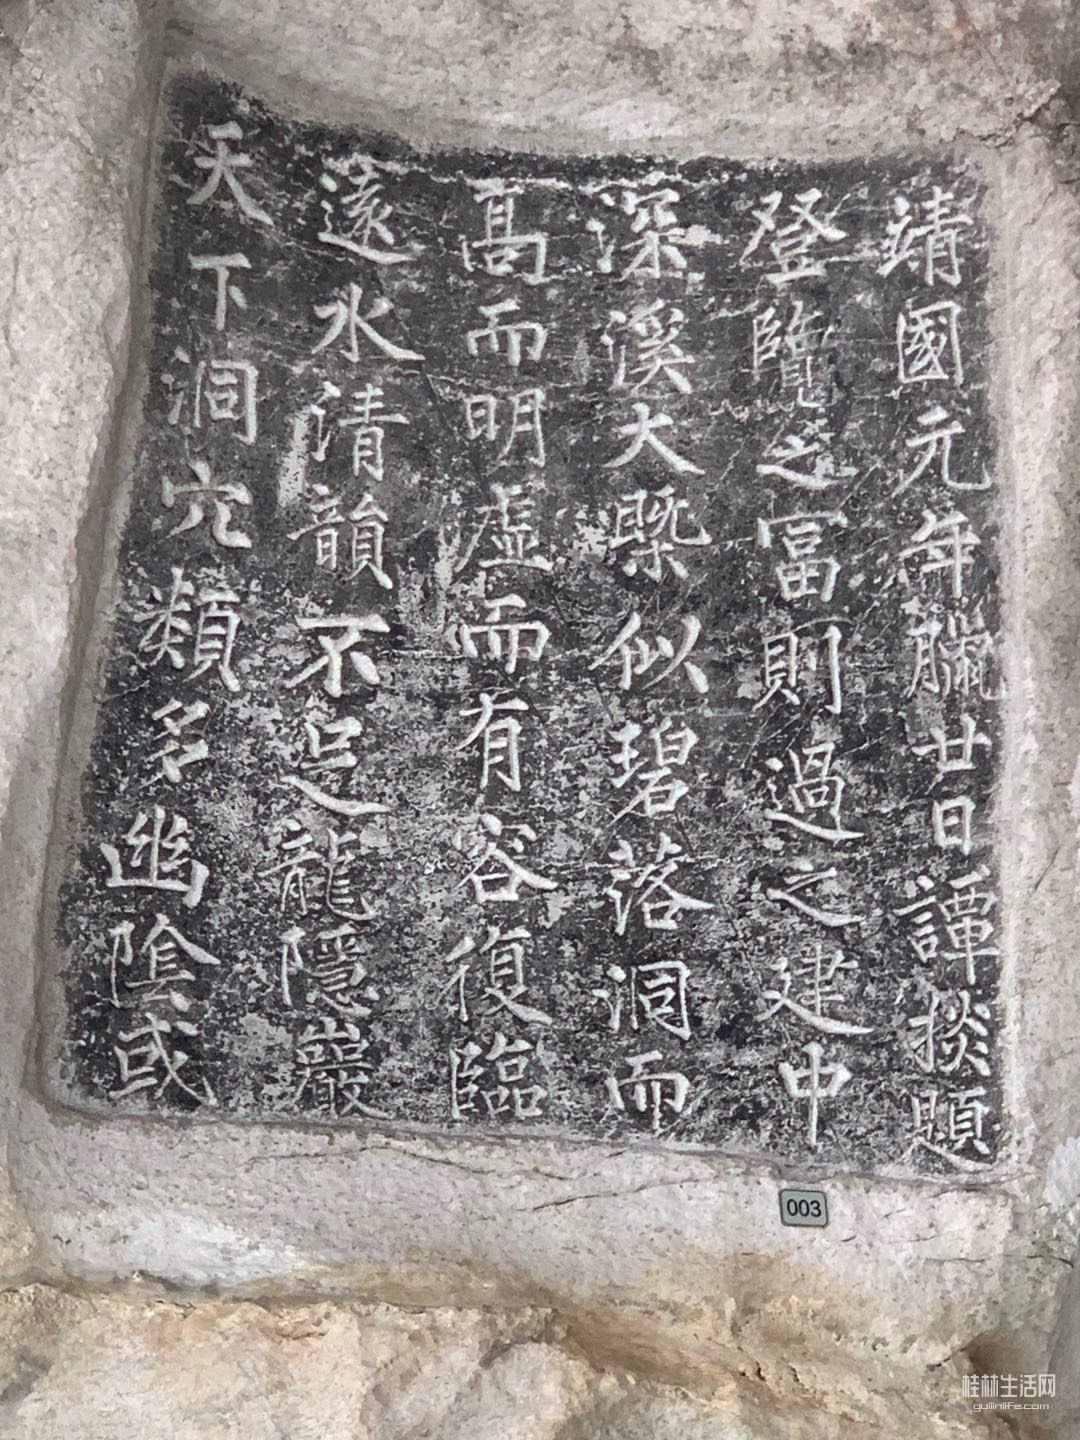 天下洞穴類多幽陰或
遠水清韻不足龍隱巖
高而明虛而有容復臨
深溪大槩似碧落洞而
登覽之冨則過之建中
靖國元年臘廿日譚掞題
003
桂林生活网
guilinlife.com